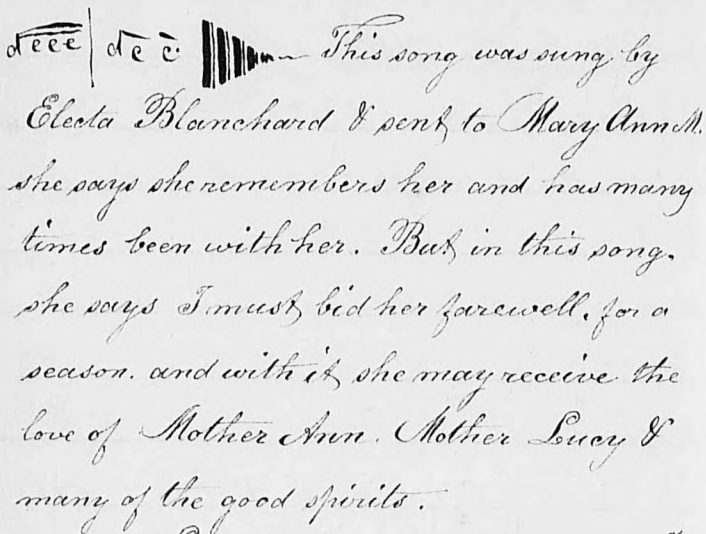 deee | de e This song was sung by
Electa Blanchard & sent to Mary Ann M.
she says she remembers her and has many
times been with her. But in this song.
she says I must bid her farewell. for a
season. and with it she may receive the
love of Mother Ann. Mother Lucy &
many of the good spirits.